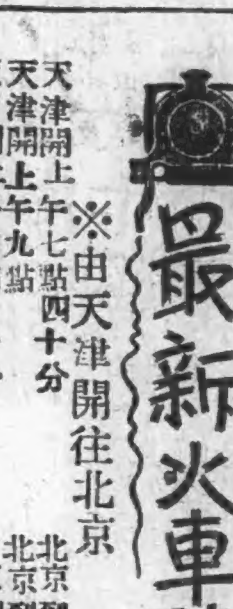 最新火車
※由天津開往北京
天津開上午七點四十分 北京
天津開上午九點 北京